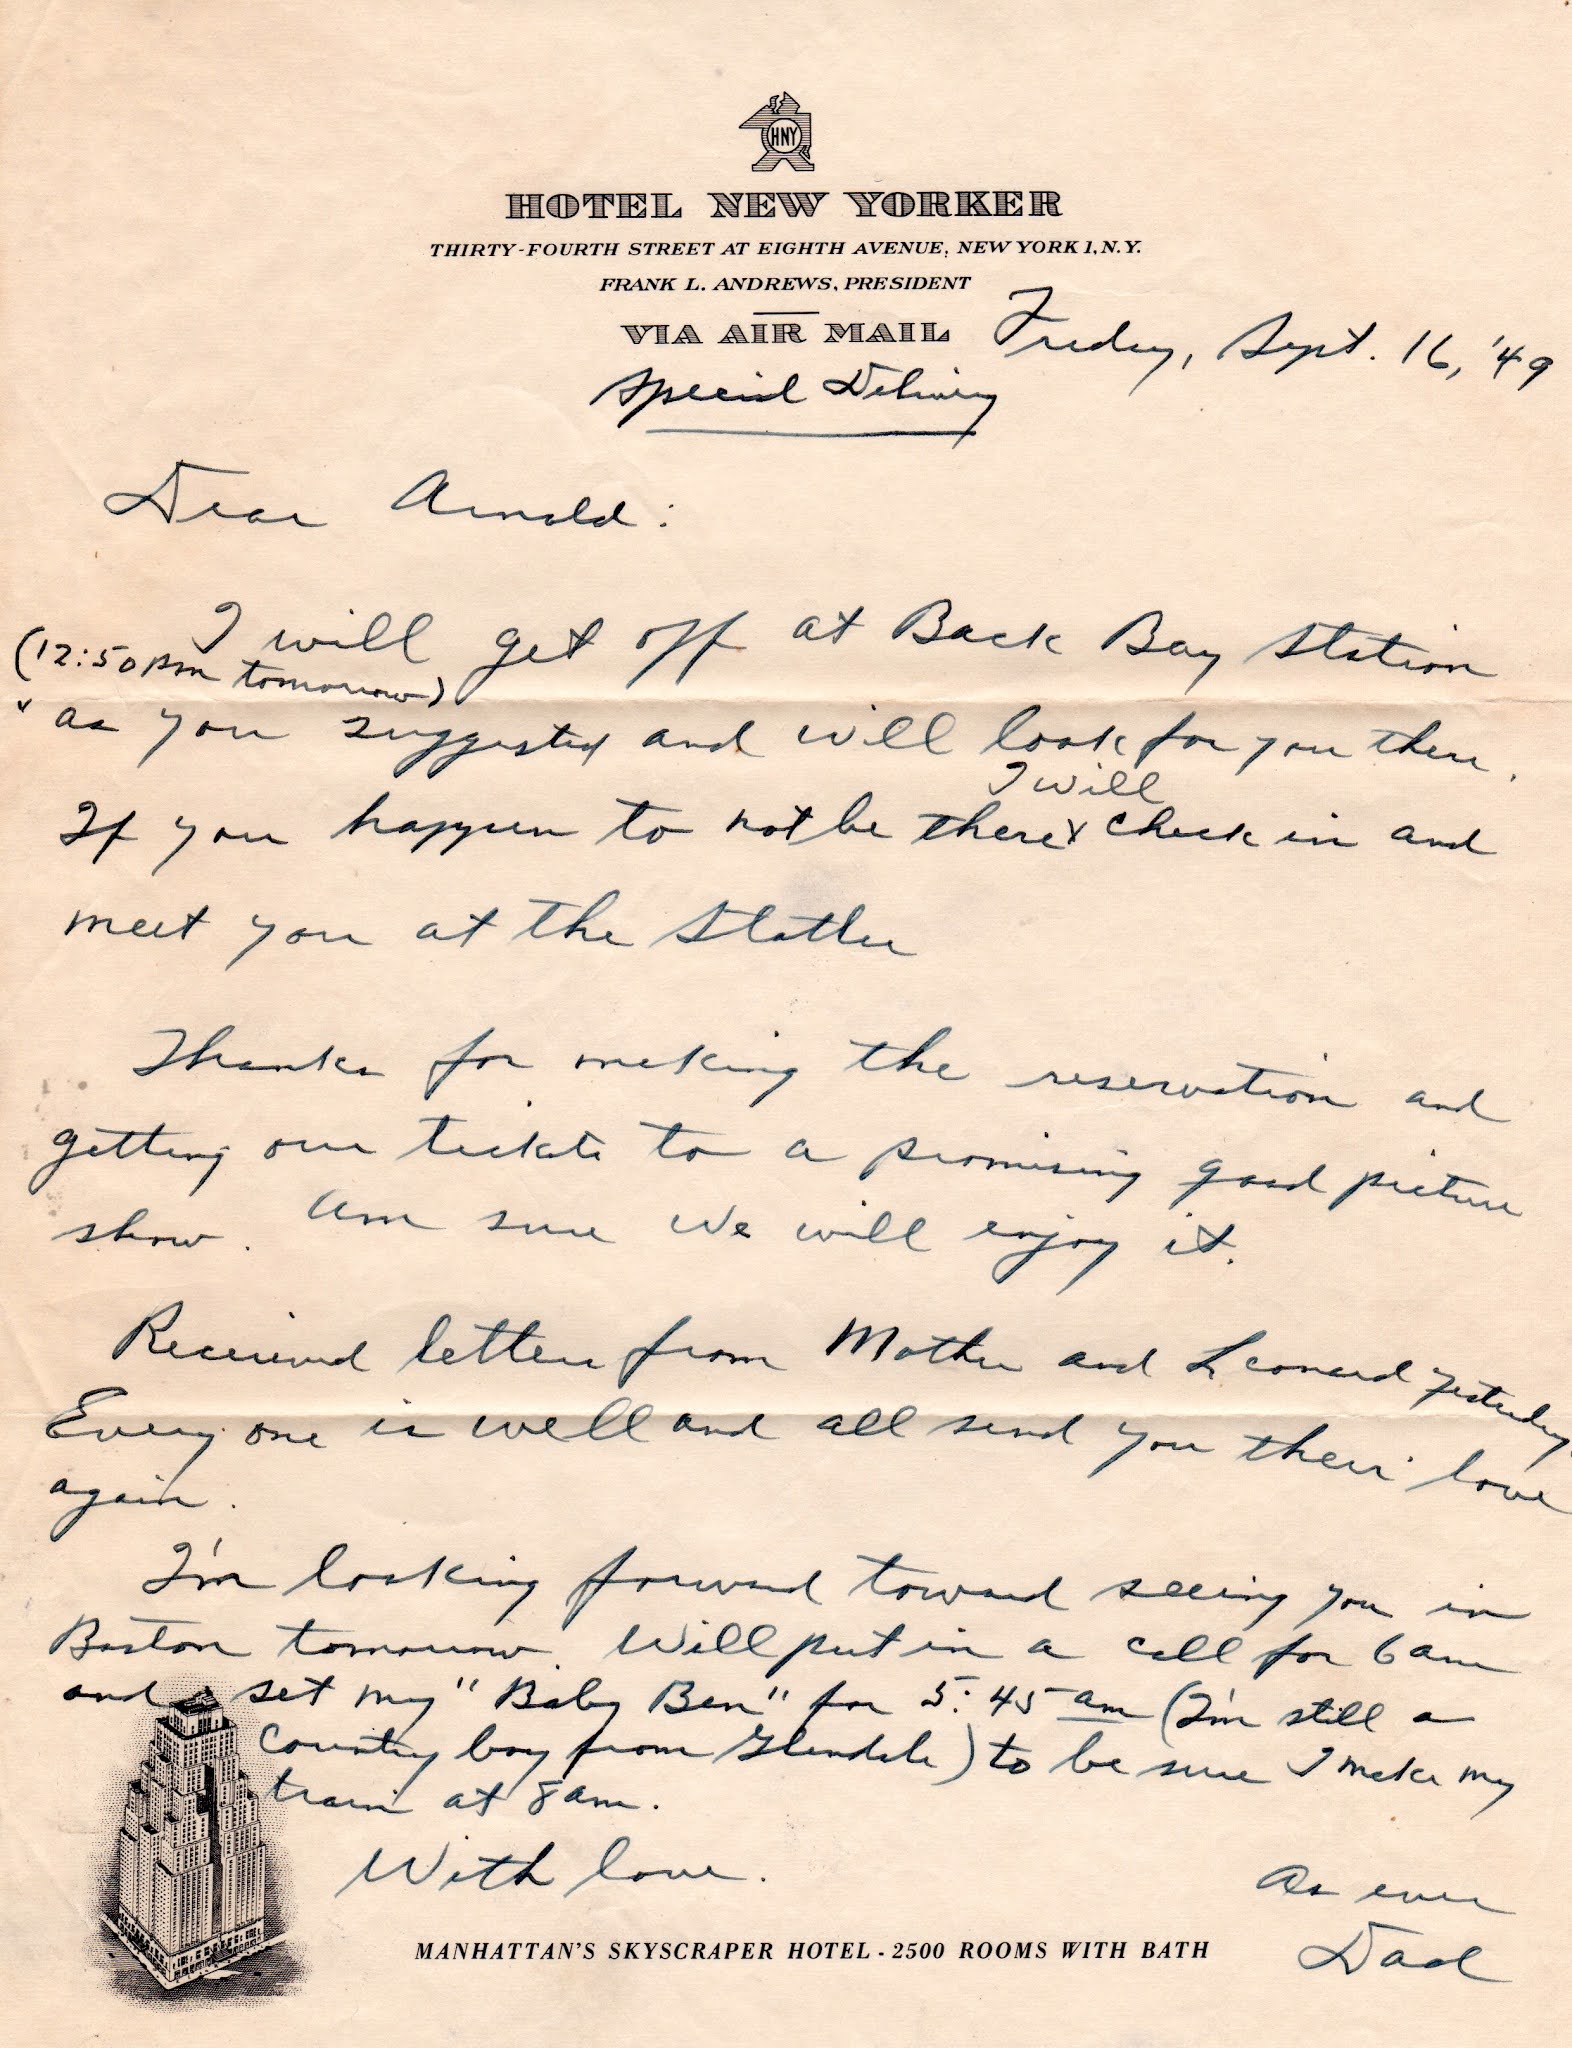 HNY
HOTEL NEW YORKER
THIRTY-FOURTH STREET AT EIGHTH AVENUE, NEW YORK 1, N.Y.
FRANK L. ANDREWS, PRESIDENT
VIA AIR MAIL
Friday, Sept. 16, '49
Special Delivery
Dear Arnold:
I will get off at Back Bay Station
(12:50 pm tomorrow)
as you suggested and will look for you there.
I will
If you happen to not be there check in and
meet you at the Statler
Thanks for making the reservation and
getting our tickets to a promising good picture
show. Am sure we will enjoy it.
Received letters from Mother and Leonard yesterday
Every one is well and all send you their love
again.
I'm looking forward toward seeing you in
Boston tomorrow. Will put in a call for 6 am
and set my "Baby Ben" for 5:45 am (I'm still a
country boy from Glendale) to be sure I make my
train at 8 am.
With love.
As ever
Dad
MANHATTAN'S SKYSCRAPER HOTEL - 2500 ROOMS WITH BATH